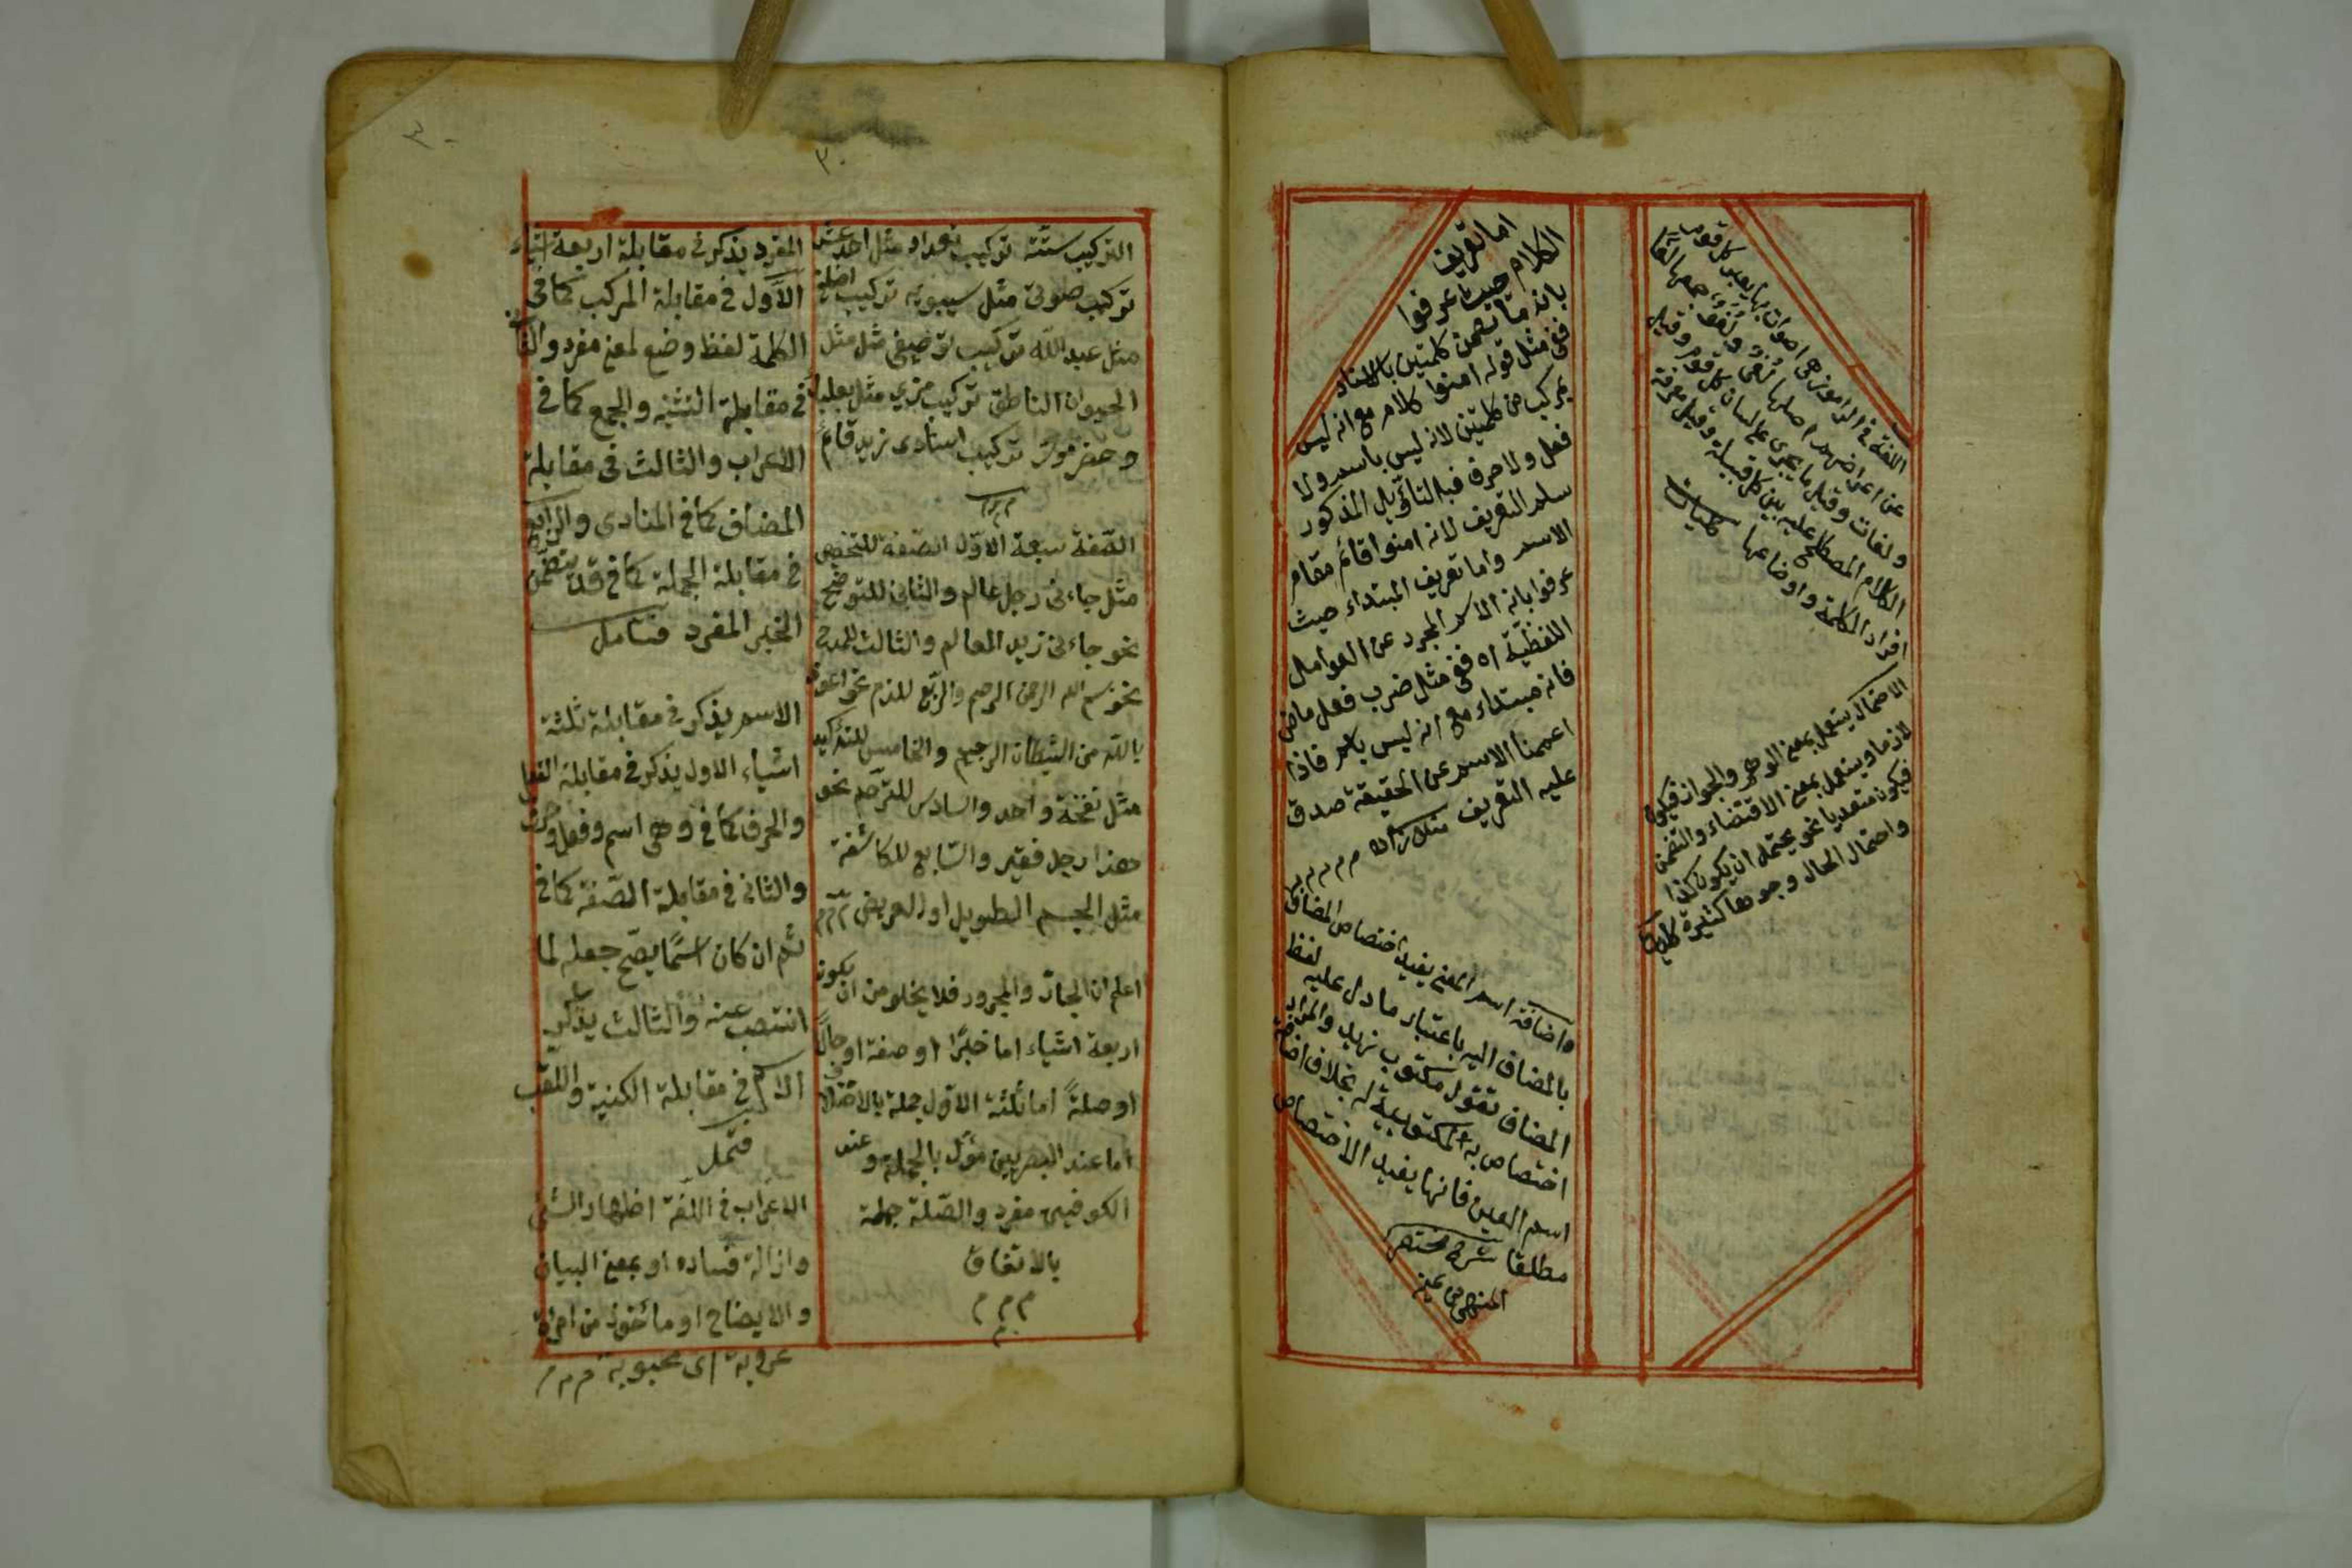 اللغة في الراموز هي اصوات بها يعبر كل قوم
عن اغراضهم اصلها لغى او لغو جمعها لغى
ولغات وقيل ما يجرى على لسان كل قوم وقيل
الكلام المصطلح عليه بين كل قبيلة وقيل معرفة
افراد الكلمة واوضاعها كليات
الاحتمال يستعمل بمعنى الوهم والجواز فيكون
لازما ويستعمل بمعنى الاقتضاء والتضمن
فيكون متعديا نحو يحتمل ان يكون كذا
واحتمال الحال وجوها كثيرة كليات
اما تعريف
الكلام حيث عرفوا
بانه ما تضمن كلمتين بالاسناد
ففى مثل قوله امنوا كلام مع انه ليس
بمركب من كلمتين لانه ليس باسم ولا
فعل ولا حرف فبالتأويل المذكور
سلم التعريف لانه امنوا قائم مقام
الاسم واما تعريف المبتداء حيث
عرفوا بانه الاسم المجرد عن العوامل
اللفظية اه ففى مثل ضرب فعل ماض
فانه مبتداء مع انه ليس باسم فاذا
اعممنا الاسم عن الحقيقة صدق
عليه التعريف م م م م م
واضافة اسم المعنى يفيد اختصاص المضاف
بالمضاف اليه باعتبار ما دل عليه لفظ
المضاف تقول مكتوب زيد والمراد
اختصاص به المكتوبية له بخلاف اضافة
اسم العين فانها يفيد الاختصاص
مطلقا شرح مختصر
المنتهى
٣٠
٣٠
التركيب ستة تركيب تعداد مثل احد عشر
تركيب صوتى مثل سيبويه تركيب اضافى
مثل عبد الله تركيب توصيفى مثل مثل
الحيوان الناطق تركيب مزجي مثل بعلبك
وحضرموت تركيب اسنادى زيد قائم
م م م
الصفة سبعة الاول الصفة للتخصيص
مثل جاءنى رجل عالم والثانى للتوضيح
نحو جاءنى زيد العالم والثالث للمدح
نحو بسم الله الرحمن الرحيم والرابع للذم نحو اعوذ
بالله من الشيطان الرجيم والخامس للتأكيد
مثل نفخة واحد والسادس للترحم نحو
هذا رجل فقير والسابع للكاشفة
مثل الجسم الطويل او العريض م م م
اعلم ان الجار والمجرور فلا يخلو من ان يكون
اربعة اشياء اما خبرا او صفة او حالا
او صلة اما ثلثة الاول جملة بالاختلاف
اما عند البصريين مؤل بالجملة وعند
الكوفيين مفرد والصلة جملة
بالاتفاق
م م م
المفرد يذكر فى مقابلة اربعة اشياء
الاول فى مقابلة المركب كما فى
الكلمة لفظ وضع لمعنى مفرد والثانى
فى مقابلة التثنيه والجمع كما فى
الاعراب والثالث فى مقابلة
المضاف كما فى المنادى والرابع
فى مقابلة الجملة كما فى قد يتضمن
الخبر المفرد فتامل
الاسم يذكر فى مقابلة ثلثة
اشياء الاول يذكر فى مقابلة الفعل
والحرف كما فى وهى اسم وفعل وحرف
والثانى فى مقابلة الصفة كما فى
ثم ان كان اسما يصح جعله لما
انتصب عنه والثالث يذكر
الاسم فى مقابلة الكنية واللقب
فتمل
الاعراب فى اللغة اظهار الشئ
وازالة فساده او بمعنى البيان
والايضاح او مأخوذ من امرأة
عروبة اى محبوبة م م م